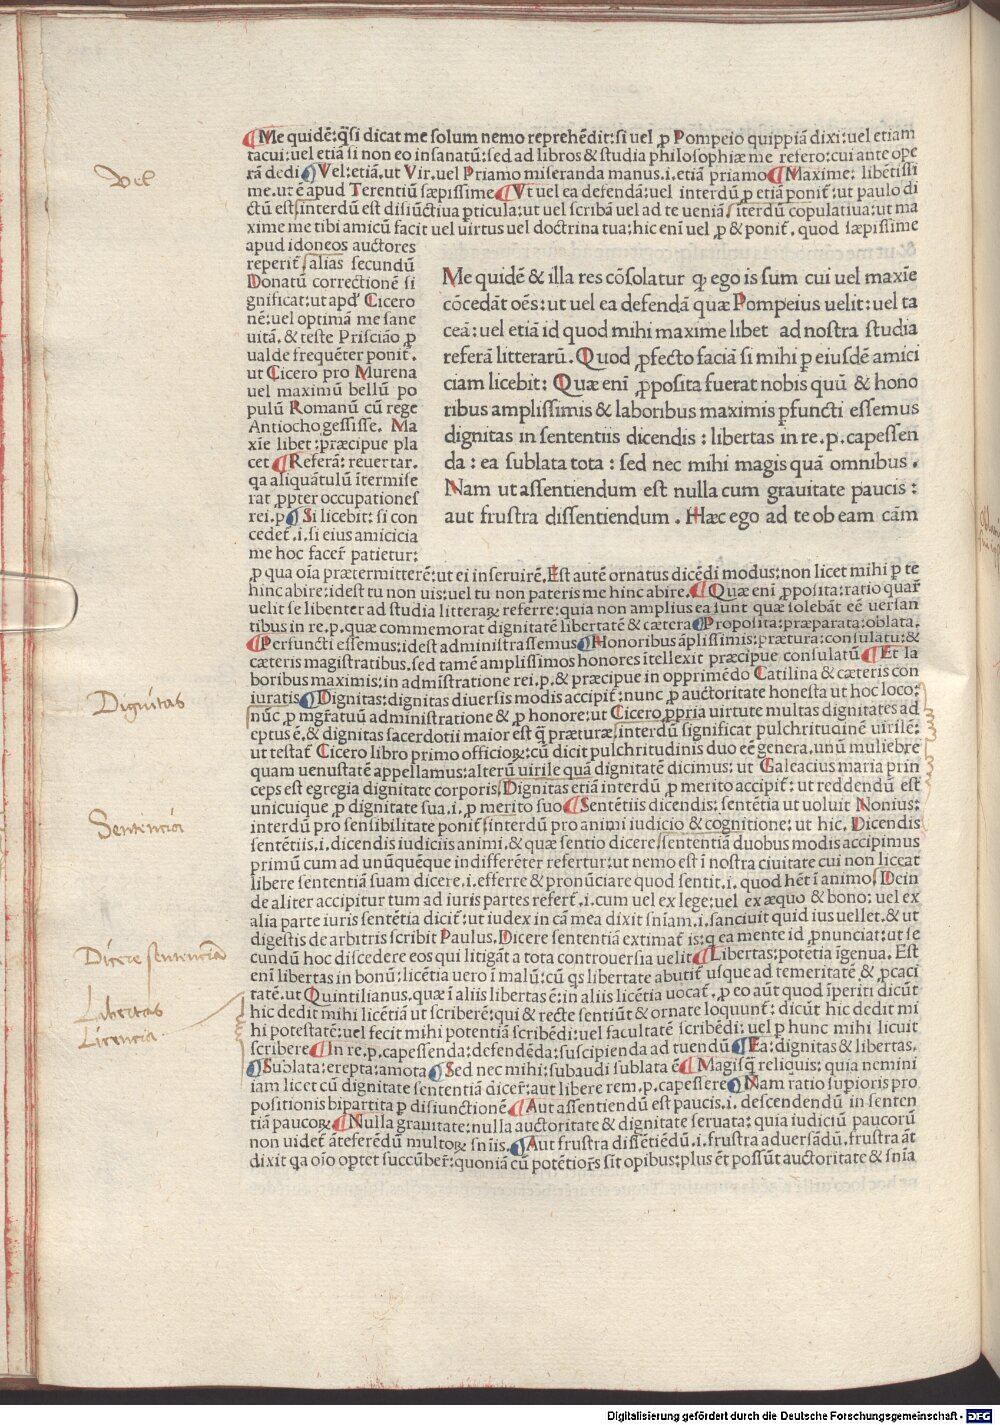 Vel
¶ Me quidē: q̄si dicat me solum nemo reprehēdit: si uel ꝓ Pompeio quippiā dixi: uel etiam
tacui: uel etiā si non eo insanatū: sed ad libros & studia philosophiæ me refero: cui ante ope
rā dedi ¶ Vel: etiā. ut Vir. uel Priamo miseranda manus. i. etiā priamo ¶ Maxime: libētissi
me. ut ē apud Terentiū sæpissime ¶ Vt uel ea defendā: uel interdū ꝓ etiā ponit̄: ut paulo di
ctū est: interdū est disiūctiua ꝑticula: ut uel scribā uel ad te ueniā: īterdū copulatiua: ut ma
xime me tibi amicū facit uel uirtus uel doctrina tua: hic enī uel ꝓ & ponit̄. quod sæpissime
apud idoneos auctores
reperit̄. alias secundū
Donatū correctionē si
gnificat: ut apd' Cicero
nē: uel optimā me sane
uitā. & teste Prisciāo ꝓ
ualde frequēter ponit̄.
ut Cicero pro Murena
uel maximū bellū po
pulū Romanū cū rege
Antiocho gessisse. Ma
xīe libet: præcipue pla
cet ¶ Referā: reuertar.
qa aliquātulū ītermise
rat ꝓpter occupationes
rei. p. ¶ Si licebit: si con
cedet̄. i. si eius amicicia
me hoc facer̄ patietur:
Me quidē & illa res cōsolatur ꝙ ego is sum cui uel maxīe
cōcedāt oēs: ut uel ea defendā quæ Pompeius uelit: uel ta
ceā: uel etiā id quod mihi maxime libet ad nostra studia
referā litterarū. Quod ꝓfecto faciā si mihi ꝑ eiusdē amici
ciam licebit: Quæ enī ꝓposita fuerat nobis quū & hono
ribus amplissimis & laboribus maximis ꝑfuncti essemus
dignitas in sententiis dicendis: libertas in re. p. capessen
da: ea sublata tota: sed nec mihi magis quā omnibus.
Nam ut assentiendum est nulla cum grauitate paucis:
aut frustra dissentiendum. Hæc ego ad te ob eam cām
ꝓ qua oīa prætermitterē: ut ei inseruirē. Est autē ornatus dicēdi modus: non licet mihi ꝑ te
hinc abire: idest tu non uis: uel tu non pateris me hinc abire. ¶ Quæ enī ꝓposita: ratio quar̄
uelit se libenter ad studia litteraꝝ referre: quia non amplius ea sunt quæ solebāt eē uersan
tibus in re. p. quæ commemorat dignitatē libertatē & cætera ¶ Proposita: præparata: oblata.
¶ Perfuncti essemus: idest administrassemus ¶ Honoribus āplissimis: prætura: consulatu: &
cæteris magistratibus. sed tamē amplissimos honores ītellexit præcipue consulatū ¶ Et la
boribus maximis: in admīstratione rei. p. & præcipue in opprimēdo Catilina & cæteris con
iuratis ¶ Dignitas: dignitas diuersis modis accipit̄: nunc ꝓ auctoritate honesta ut hoc loco:
nūc ꝓ mgr̄atuū administratione & ꝓ honore: ut Cicero ꝓpria uirtute multas dignitates ad
eptus ē. & dignitas sacerdotii maior est q̄ præturæ. interdū significat pulchritudinē uirilē:
ut testat̄ Cicero libro primo officioꝝ: cū dicit pulchritudinis duo eē genera. unū muliebre
quam uenustatē appellamus: alterū uirile quā dignitatē dicimus: ut Galeacius maria prin
ceps est egregia dignitate corporis. Dignitas etiā interdū ꝓ merito accipit̄: ut reddendū est
unicuique ꝓ dignitate sua. i. ꝓ merito suo ¶ Sententiis dicendis: sentētia ut uoluit Nonius:
interdū pro sensibilitate ponit̄: interdū pro animi iudicio & cognitione: ut hic. Dicendis
sentētiis. i. dicendis iudiciis animi. & quæ sentio dicere: sententiā duobus modis accipimus
primū cum ad unūquēque indifferēter refertur: ut nemo est ī nostra ciuitate cui non liceat
libere sententiā suam dicere. i. efferre & pronūciare quod sentit. i. quod hēt ī animo. Dein
de aliter accipitur tum ad iuris partes refert̄. i. cum uel ex lege: uel ex æquo & bono: uel ex
alia parte iuris sentētia dicit̄: ut iudex in cā mea dixit snīam. i. sanciuit quid ius uellet. & ut
digestis de arbitris scribit Paulus. Dicere sententiā extimat̄ is: q ea mente id ꝓnunciat: ut se
cundū hoc discedere eos qui litigāt a tota controuersia uelit ¶ Libertas: potētia īgenua. Est
enī libertas in bonū: licētia uero ī malū: cū qs libertate abutit̄ usque ad temeritatē & ꝓcaci
tatē. ut Quintilianus. quæ ī aliis libertas ē: in aliis licētia uocat̄. ꝓ eo aūt quod īperiti dicūt
hic dedit mihi licētiā ut scriberē: qui & recte sentiūt & ornate loquunt̄: dicūt hic dedit mi
hi potestatē: uel fecit mihi potentiā scribēdi: uel facultatē scribēdi: uel ꝑ hunc mihi licuit
scribere ¶ In re. p. capessenda: defendēda: suscipienda ad tuendū ¶ Ea: dignitas & libertas.
¶ Sublata: erepta: amota ¶ Sed nec mihi: subaudi sublata ē ¶ Magisq̄ reliquis: quia nemini
iam licet cū dignitate sententiā dicer̄: aut libere rem. p. capessere ¶ Nam ratio supīoris pro
positionis bipartita ꝑ disiunctionē ¶ Aut assentiendū est paucis. i. descendendū in senten
tiā paucoꝝ. ¶ Nulla grauitate: nulla auctoritate & dignitate seruata: quia iudiciū paucorū
non uidet̄ āteferēdū multoꝝ snīis. ¶ Aut frustra dissētiēdū. i. frustra aduersādū. frustra āt
dixit qa oīo optet succūber̄: quoniā cū potētior̄s sīt opibus: plus ēt possūt auctoritate & snīa
Dignitas
Sentencia
Dicere sentenciā
Libertas
Licencia
Digitalisierung gefördert durch die Deutsche Forschungsgemeinschaft - DFG